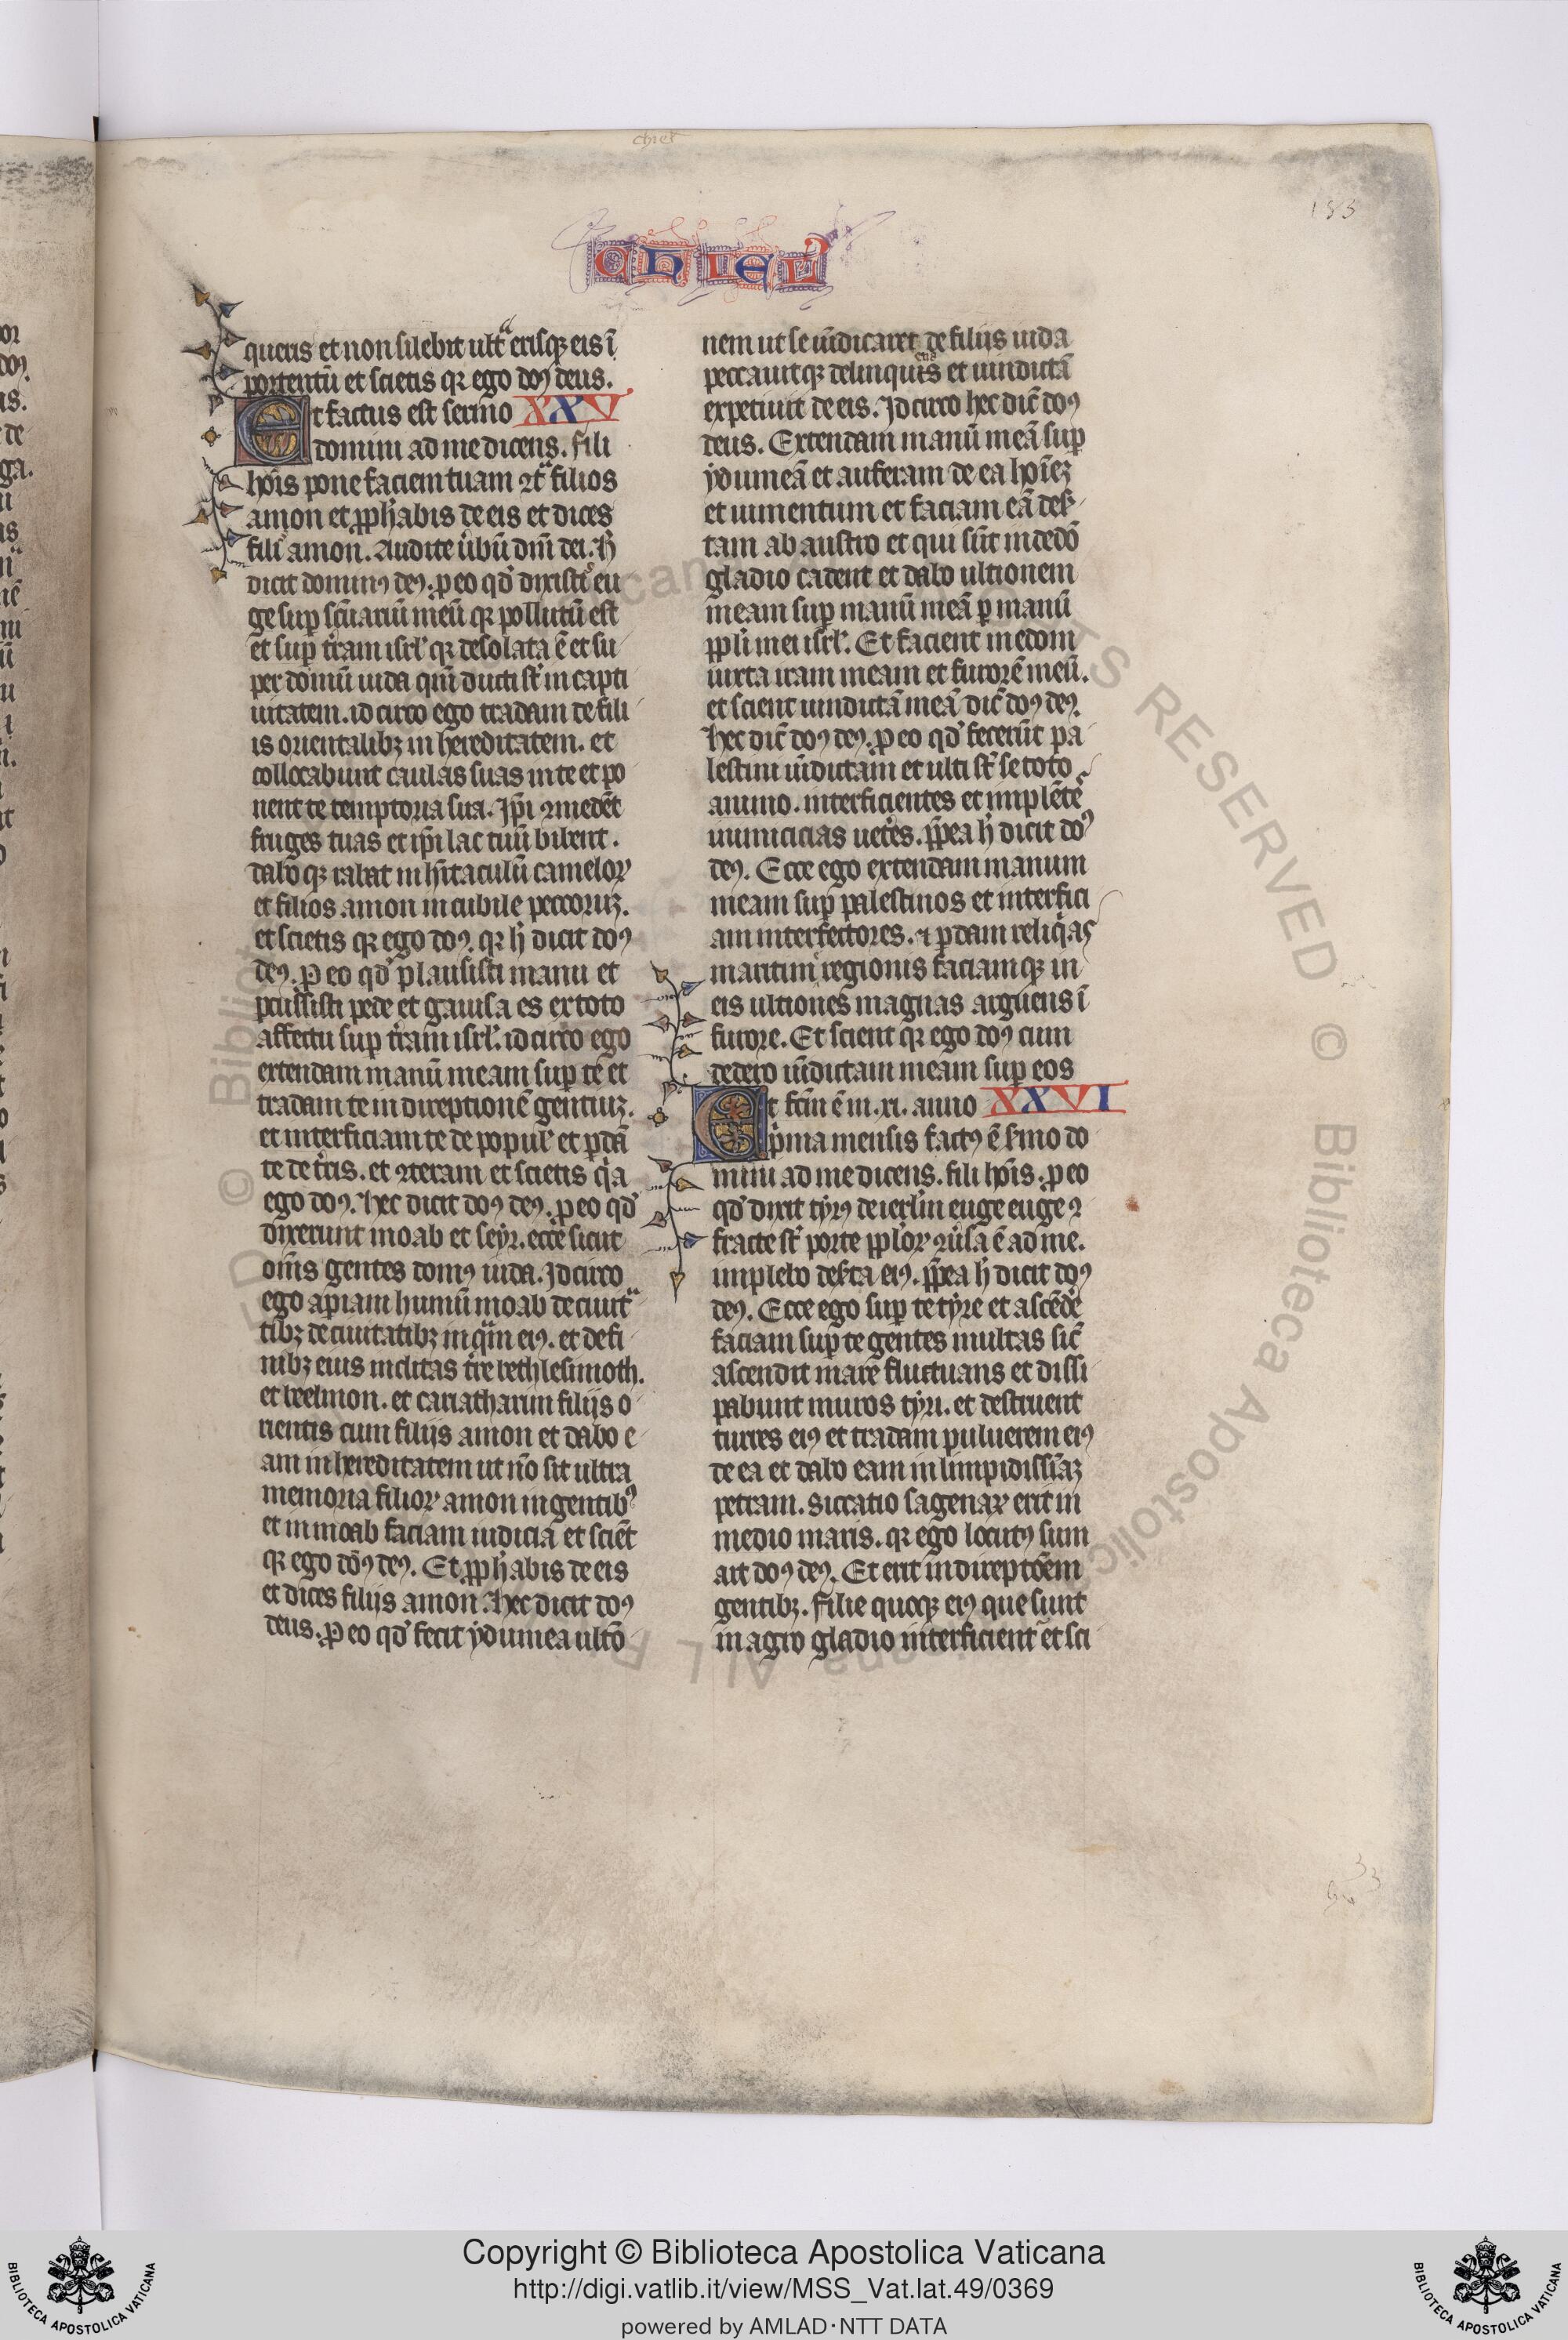 chiel
153
CHIEL
queris et non silebit ultͣ erisqꝫ eis ī
portentū et scietis qꝛ ego doꝰ deus.
Et factus est sermo XXV
domini ad me dicens. fili
hoı̄s pone faciem tuam ꝯtͣ filios
amon et ꝓphabis de eis et dices
filiis amon. Audite ūbū dn̄i dei. h̄
dicit dominꝰ deꝰ. ꝓ eo qd̄ dixisti eu
ge suꝑ sc̄uariū meū qꝛ pollutū est
et suꝑ t̄ram isrl̄ qꝛ desolata ē et su
per domū iuda qm̄ ducti st̄ in capti
uitatem. idcirco ego tradam te fili
is orientalibꝫ in hereditatem. et
collocabunt caulas suas in te et po
nent te temptoria sua. Ip̄i ꝯmedēt
fruges tuas et ip̄i lac tuū bibent.
daboqꝫ rabat in hītaculū cameloꝝ
et filios amon in cubile peccoruꝫ.
et scietis qꝛ ego doꝰ. qꝛ h̄ dicit doꝰ
deꝰ. ꝓ eo qd̄ plausisti manu et
pcussisti pede et gauisa es ex toto
affectu suꝑ t̄ram isrl̄. idcirco ego
extendam manū meam suꝑ te et
tradam te in direptionē gentiuꝫ.
et interficiam te de popul̄ et ꝑdā
te de t̄ris. et ꝯteram et scietis qͥa
ego doꝰ. hec dicit doꝰ deꝰ. ꝓ eo qd̄
dixerunt moab et seyr. ecce sicut
om̄s gentes domꝰ iuda. Idcirco
ego aperiam humū moab de ciuitͣ
tibꝫ de ciuitatibꝫ inqͣm eiꝰ. et de fi
nibꝫ eius inclitas t̄re bethlesimoth.
et beelmon. et cariatharim filijs o
rientis cum filijs amon et dabo e
am in hereditatem ut nō sit ultra
memoria filioꝝ amon in gentibꝰ
et in moab faciam iudicia et sciēt
qꝛ ego doꝰ deꝰ. Et ꝓphabis de eis
et dices filijs amon. hec dicit doꝰ
deus. ꝓ eo qd̄ fecit ydumea ultō
nem ut se uīdicaret de filijs iuda
peccauitqꝫ delinquēs et uindictā
expetiuit de eis. Idcirco hec dic̄ doꝰ
deus. Extendam manū meā suꝑ
ydumeā et auferam de ea hoı̄eꝫ
et iumentum et faciam eā des̄
tam ab austro et qui sūt in dedō
gladio cadent et dabo ultionem
meam suꝑ manū meā ꝑ manū
ppl̄i mei isrl̄. Et facient in edom
iuxta iram meam et furorē meū.
et scient uindictā meā dic̄ doꝰ deꝰ.
hec dic̄ doꝰ deꝰ. ꝓ eo qd̄ fecerūt pa
lestini uīdictam et ulti st̄ se toto
animo. interficientes et implētē
inimicicias uet̄es. ꝓp̄ea h̄ dicit doꝰ
deꝰ. Ecce ego extendam manum
meam suꝑ palestinos et interfici
am interfectores. ⁊ ꝑdam reliqͥas
maritim̄ regionis faciamqꝫ in
eis ultiones magnas arguens ī
furore. Et scient qꝛ ego doꝰ cum
dedero uīdictam meam suꝑ eos
Et fc̄m ē in .xi. anno XXVI
pͥma mensis factꝰ ē s̄mo do
mini ad me dicens. fili hoı̄s. ꝓ eo
qd̄ dixit tyrꝰ de ierl̄m euge euge ꝯ
fracte st̄ porte ppl̄oꝝ ꝯūsa ē ad me.
implebo des̄ta eiꝰ. ꝓp̄ea h̄ dicit doꝰ
deꝰ. Ecce ego suꝑ te tyre et ascēde
faciam suꝑ te gentes multas sic̄
ascendit mare fluctuans et dissi
pabunt muros tyri. et destruent
turres eiꝰ et tradam puluerem eiꝰ
de ea et dabo eam in limpidissīaꝫ
petram. siccatio sagenaꝝ erit in
medio maris. qꝛ ego locutꝰ sum
ait doꝰ deꝰ. Et erit in direptōem
gentibꝫ. filie quoqꝫ eiꝰ que sunt
in agro gladio interficient̄ et sci
Copyright © Biblioteca Apostolica Vaticana
http://digi.vatlib.it/view/MSS_Vat.lat.49/0369
powered by AMLAD·NTT DATA
BIBLIOTECA APOSTOLICA VATICANA
BIBLIOTECA APOSTOLICA VATICANA